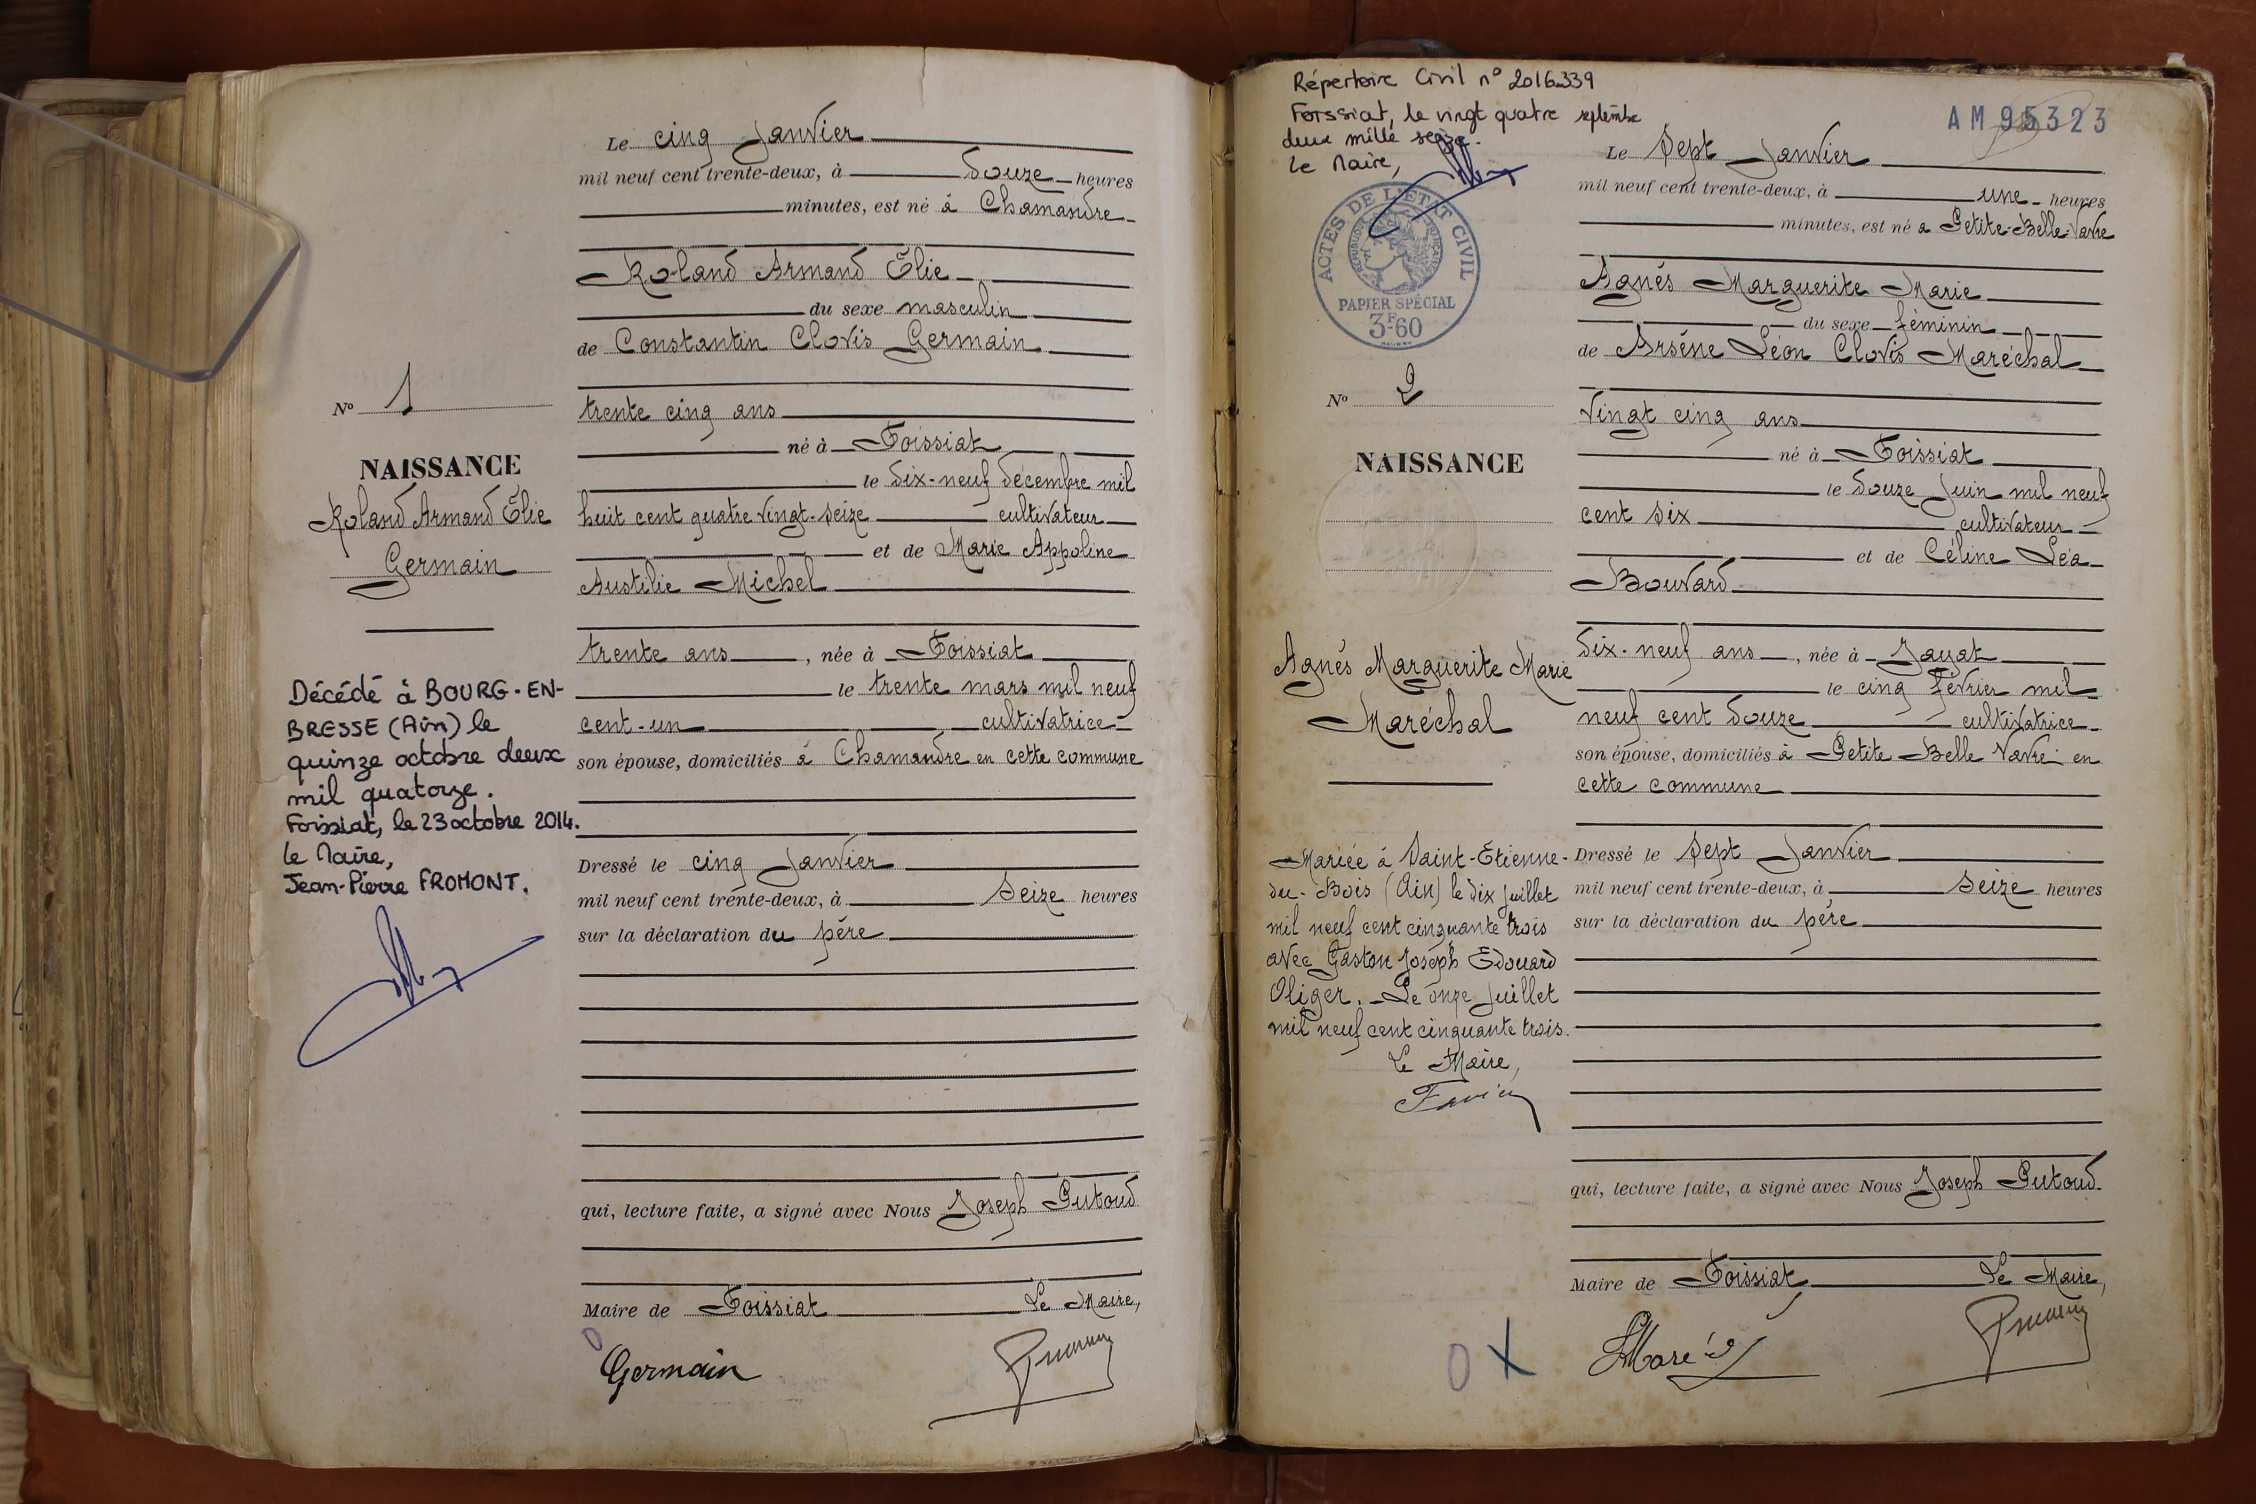 Le cinq Janvier
mil neuf cent trente-deux, à douze heures
minutes, est né à Chamandre
Roland Armand Élie
du sexe masculin
de Constantin Clovis Germain
trente cinq ans
né à Foissiat
le dix-neuf décembre mil
huit cent quatre vingt-seize cultivateur
et de Marie Appoline
Austilie Michel
trente ans, née à Foissiat
le trente mars mil neuf
cent-un cultivatrice
son épouse, domiciliés à Chamandre en cette commune
Dressé le cinq Janvier
mil neuf cent trente-deux, à Seize heures
sur la déclaration du père
qui, lecture faite, a signé avec Nous Joseph Putoud
Maire de Foissiat Le Maire,
Germain
N° 1
NAISSANCE
Roland Armand Élie
Germain
Décédé à BOURG-EN-
BRESSE (Ain) le
quinze octobre deux
mil quatorze.
Foissiat, le 23 octobre 2014.
Le Maire,
Jean-Pierre FROMONT.
Répertoire Civil n° 2016-339
Foissiat, le vingt quatre septembre
deux mille seize.
Le Maire,
ACTES DE L'ÉTAT CIVIL
RÉPUBLIQUE FRANÇAISE
PAPIER SPÉCIAL
3F60
N° 2
NAISSANCE
Agnès Marguerite Marie
Maréchal
Mariée à Saint-Etienne-
du-Bois (Ain) le dix juillet
mil neuf cent cinquante trois
avec Gaston Joseph Edouard
Oliger. Le onze juillet
mil neuf cent cinquante trois.
Le Maire,
AM 95323
Le Sept Janvier
mil neuf cent trente-deux, à une heures
minutes, est né à Petite-Belle-Vavre
Agnès Marguerite Marie
du sexe féminin
de Arsène Léon Clovis Maréchal
vingt cinq ans
né à Foissiat
le douze Juin mil neuf
cent six cultivateur
et de Céline Léa
Bouvard
dix-neuf ans, née à Jayat
le cinq février mil
neuf cent douze cultivatrice
son épouse, domiciliés à Petite Belle Vavre en
cette commune
Dressé le Sept Janvier
mil neuf cent trente-deux, à Seize heures
sur la déclaration du père
qui, lecture faite, a signé avec Nous Joseph Putoud
Maire de Foissiat Le Maire,